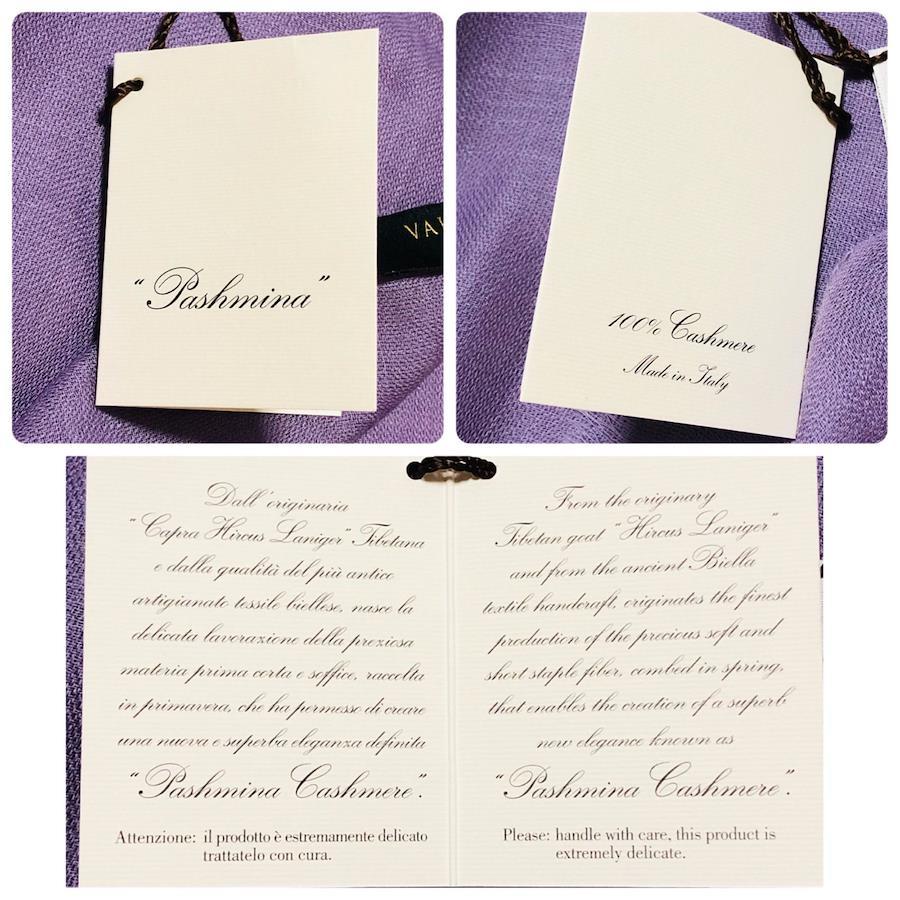 "Pashmina"
100% Cashmere
Made in Italy
Dall'originaria
"Capra Hircus Laniger" Tibetana
e dalla qualità del più antico
artigianato tessile biellese, nasce la
delicata lavorazione della preziosa
materia prima corta e soffice, raccolta
in primavera, che ha permesso di creare
una nuova e superba eleganza definita
"Pashmina Cashmere".
Attenzione: il prodotto è estremamente delicato
trattatelo con cura.
From the originary
Tibetan goat "Hircus Laniger"
and from the ancient Biella
textile handcraft, originates the finest
production of the precious soft and
short staple fiber, combed in spring,
that enables the creation of a superb
new elegance known as
"Pashmina Cashmere".
Please: handle with care, this product is
extremely delicate.